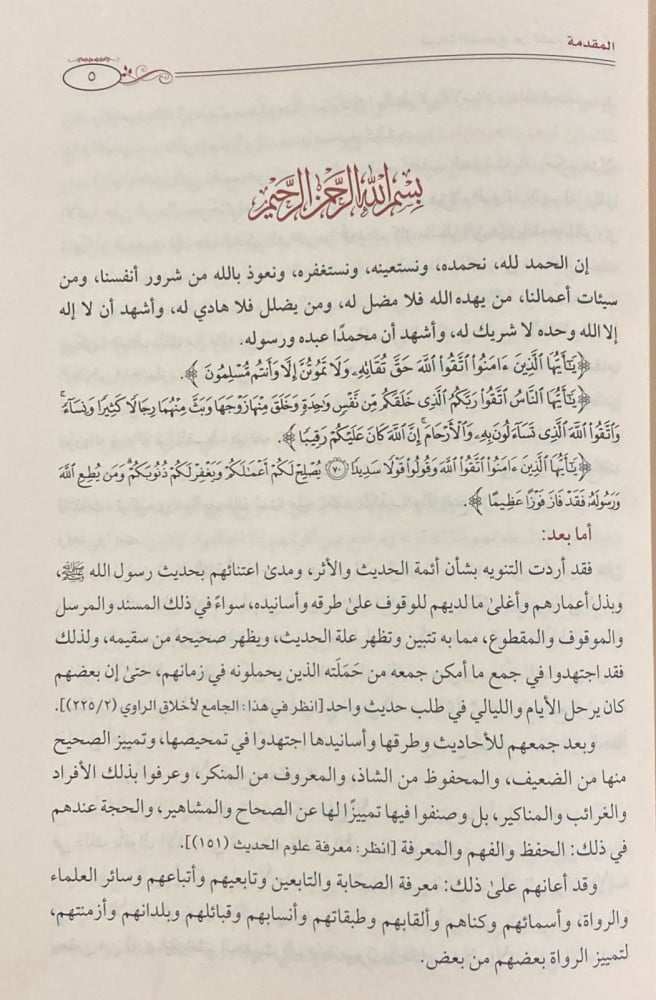 المقدمة
٥
بسم الله الرحمن الرحيم
إن الحمد لله، نحمده، ونستعينه، ونستغفره، ونعوذ بالله من شرور أنفسنا، ومن
سيئات أعمالنا، من يهده الله فلا مضل له، ومن يضلل فلا هادي له، وأشهد أن لا إله
إلا الله وحده لا شريك له، وأشهد أن محمدًا عبده ورسوله.
﴿يَـٰٓأَيُّهَا ٱلَّذِينَ ءَامَنُوا۟ ٱتَّقُوا۟ ٱللَّهَ حَقَّ تُقَاتِهِۦ وَلَا تَمُوتُنَّ إِلَّا وَأَنتُم مُّسْلِمُونَ﴾.
﴿يَـٰٓأَيُّهَا ٱلنَّاسُ ٱتَّقُوا۟ رَبَّكُمُ ٱلَّذِى خَلَقَكُم مِّن نَّفْسٍ وَٰحِدَةٍ وَخَلَقَ مِنْهَا زَوْجَهَا وَبَثَّ مِنْهُمَا رِجَالًا كَثِيرًا وَنِسَآءً ۚ
وَٱتَّقُوا۟ ٱللَّهَ ٱلَّذِى تَسَآءَلُونَ بِهِۦ وَٱلْأَرْحَامَ ۚ إِنَّ ٱللَّهَ كَانَ عَلَيْكُمْ رَقِيبًا﴾.
﴿يَـٰٓأَيُّهَا ٱلَّذِينَ ءَامَنُوا۟ ٱتَّقُوا۟ ٱللَّهَ وَقُولُوا۟ قَوْلًا سَدِيدًا ۝٧٠ يُصْلِحْ لَكُمْ أَعْمَـٰلَكُمْ وَيَغْفِرْ لَكُمْ ذُنُوبَكُمْ ۗ وَمَن يُطِعِ ٱللَّهَ
وَرَسُولَهُۥ فَقَدْ فَازَ فَوْزًا عَظِيمًا﴾.
أما بعد:
فقد أردت التنويه بشأن أئمة الحديث والأثر، ومدىٰ اعتنائهم بحديث رسول الله ﷺ،
وبذل أعمارهم وأغلىٰ ما لديهم للوقوف علىٰ طرقه وأسانيده، سواءً في ذلك المسند والمرسل
والموقوف والمقطوع، مما به تتبين وتظهر علة الحديث، ويظهر صحيحه من سقيمه، ولذلك
فقد اجتهدوا في جمع ما أمكن جمعه من حَمَلَته الذين يحملونه في زمانهم، حتىٰ إن بعضهم
كان يرحل الأيام والليالي في طلب حديث واحد [انظر في هذا: الجامع لأخلاق الراوي (٢/ ٢٢٥)].
وبعد جمعهم للأحاديث وطرقها وأسانيدها اجتهدوا في تمحيصها، وتمييز الصحيح
منها من الضعيف، والمحفوظ من الشاذ، والمعروف من المنكر، وعرفوا بذلك الأفراد
والغرائب والمناكير، بل وصنفوا فيها تمييزًا لها عن الصحاح والمشاهير، والحجة عندهم
في ذلك: الحفظ والفهم والمعرفة [انظر: معرفة علوم الحديث (١٥١)].
وقد أعانهم علىٰ ذلك: معرفة الصحابة والتابعين وتابعيهم وأتباعهم وسائر العلماء
والرواة، وأسمائهم وكناهم وألقابهم وطبقاتهم وأنسابهم وقبائلهم وبلدانهم وأزمنتهم،
لتمييز الرواة بعضهم من بعض.